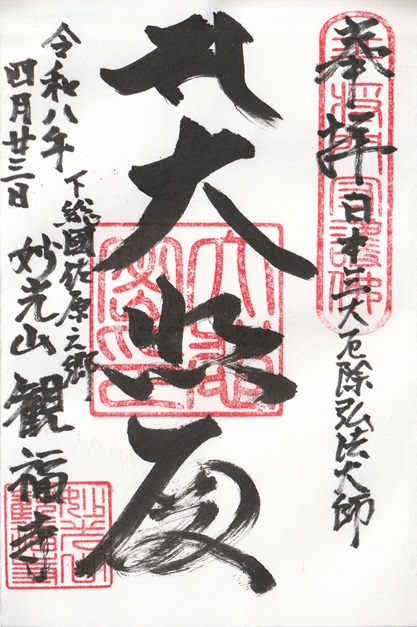 奉拝 日本三大厄除弘法大師
将門守護佛
大悲殿
下総國佐原之郷
妙光山 観福寺
令和八年
四月廿三日